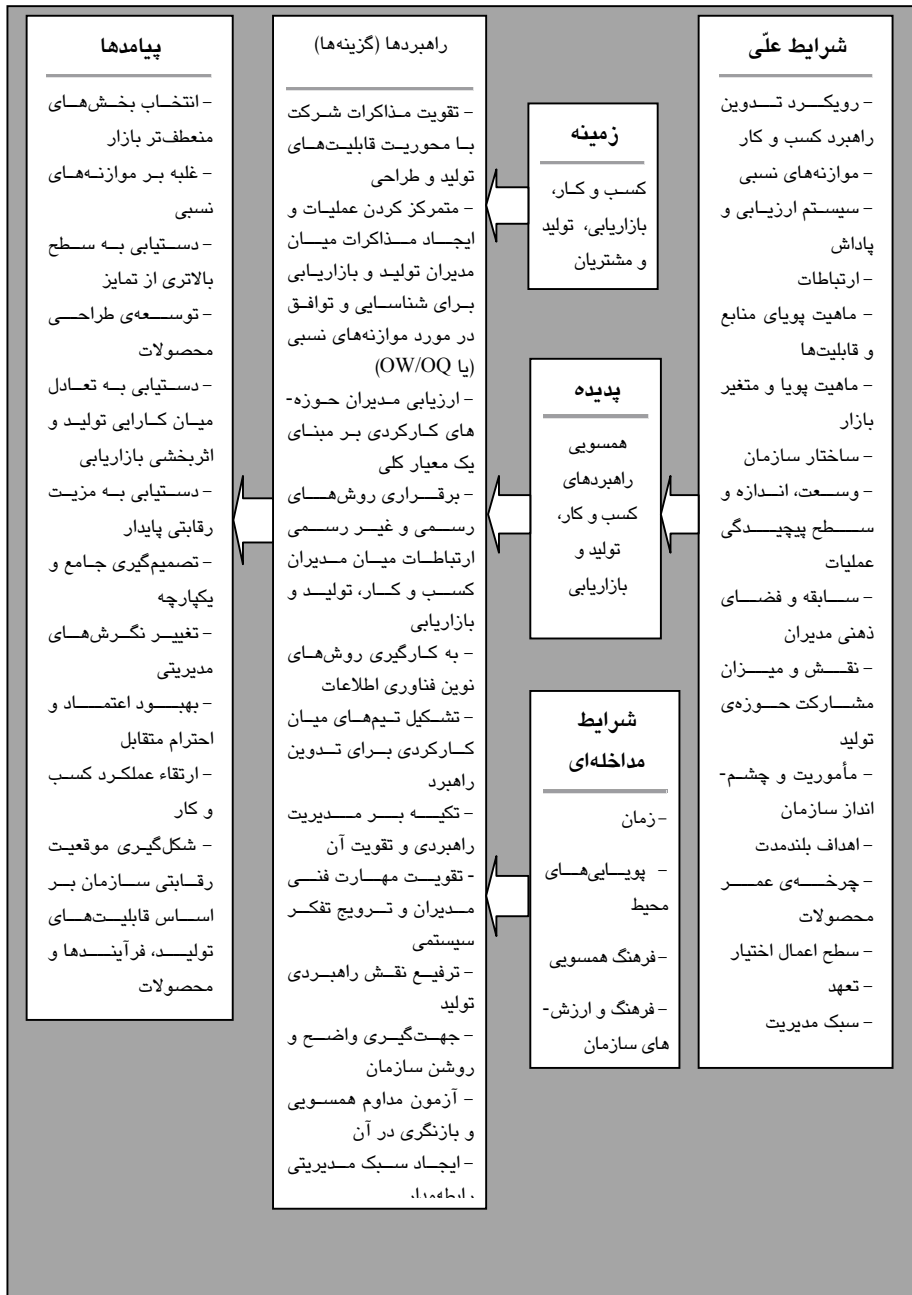 شرایط علّی
- رویکرد تدوین
راهبرد کسب و کار
- موازنه‌های نسبی
- سیستم ارزیابی و
پاداش
- ارتباطات
- ماهیت پویای منابع
و قابلیت‌ها
- ماهیت پویا و متغیر
بازار
- ساختار سازمان
- وسعت، اندازه و
سطح پیچیدگی
عملیات
- سابقه و فضای
ذهنی مدیران
- نقش و میزان
مشارکت حوزه‌ی
تولید
- مأموریت و چشم-
انداز سازمان
- اهداف بلندمدت
- چرخه‌ی عمر
محصولات
- سطح اعمال اختیار
- تعهد
- سبک مدیریت
زمینه
کسب و کار،
بازاریابی، تولید
و مشتریان
پدیده
همسویی
راهبردهای
کسب و کار،
تولید و
بازاریابی
شرایط
مداخله‌ای
- زمان
- پویایی‌های
محیط
- فرهنگ همسویی
- فرهنگ و ارزش-
های سازمان
راهبردها (گزینه‌ها)
- تقویت مذاکرات شرکت
با محوریت قابلیت‌های
تولید و طراحی
- متمرکز کردن عملیات و
ایجاد مذاکرات میان
مدیران تولید و بازاریابی
برای شناسایی و توافق
در مورد موازنه‌های نسبی
(یا OW/OQ)
- ارزیابی مدیران حوزه-
های کارکردی بر مبنای
یک معیار کلی
- برقراری روش‌های
رسمی و غیر رسمی
ارتباطات میان مدیران
کسب و کار، تولید و
بازاریابی
- به کارگیری روش‌های
نوین فناوری اطلاعات
- تشکیل تیم‌های میان
کارکردی برای تدوین
راهبرد
- تکیه بر مدیریت
راهبردی و تقویت آن
- تقویت مهارت فنی
مدیران و ترویج تفکر
سیستمی
- ترفیع نقش راهبردی
تولید
- جهت‌گیری واضح و
روشن سازمان
- آزمون مداوم همسویی
و بازنگری در آن
- ایجاد سبک مدیریتی
رابطه‌مدار
پیامدها
- انتخاب بخش‌های
منعطف‌تر بازار
- غلبه بر موازنه‌های
نسبی
- دستیابی به سطح
بالاتری از تمایز
- توسعه‌ی طراحی
محصولات
- دستیابی به تعادل
میان کارایی تولید و
اثربخشی بازاریابی
- دستیابی به مزیت
رقابتی پایدار
- تصمیم‌گیری جامع و
یکپارچه
- تغییر نگرش‌های
مدیریتی
- بهبود اعتماد و
احترام متقابل
- ارتقاء عملکرد کسب
و کار
- شکل‌گیری موقعیت
رقابتی سازمان بر
اساس قابلیت‌های
تولید، فرآیندها و
محصولات